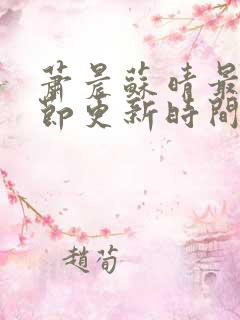 蕭晨蘇晴最
節更新時間
趙荀